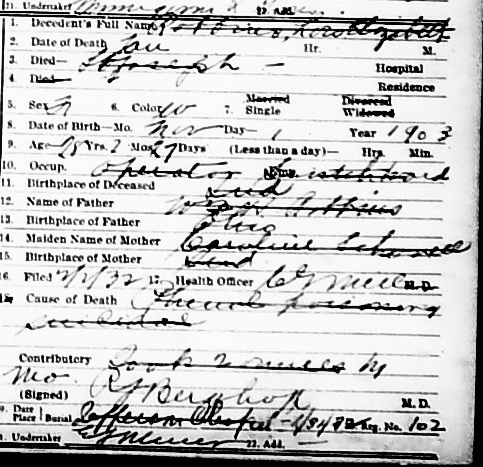 21. Undertaker 22. Add.
1. Decedent's Full Name Robbins, Lora Elizabeth
2. Date of Death Jan Hr. M.
3. Died— St Joseph — Hospital
4. Died— Residence
5. Sex F 6. Color W 7. Married Single Divorced Widowed
8. Date of Birth—Mo. Nov Day— 1 Year 1903
9. Age 28 Yrs. 2 Mos. 27 Days (Less than a day)— Hrs. Min.
10. Occup. operator
11. Birthplace of Deceased Ind
12. Name of Father Robbins
13. Birthplace of Father Ohio
14. Maiden Name of Mother Caroline
15. Birthplace of Mother Ind
16. Filed 2/1/32 17. Health Officer M.D.
18. Cause of Death Phenol poisoning
suicidal
Contributory Took by
mo.
(Signed) M.D.
19. Date Place Burial Jefferson Chapel Reg. No. 102
21. Undertaker 22. Add.